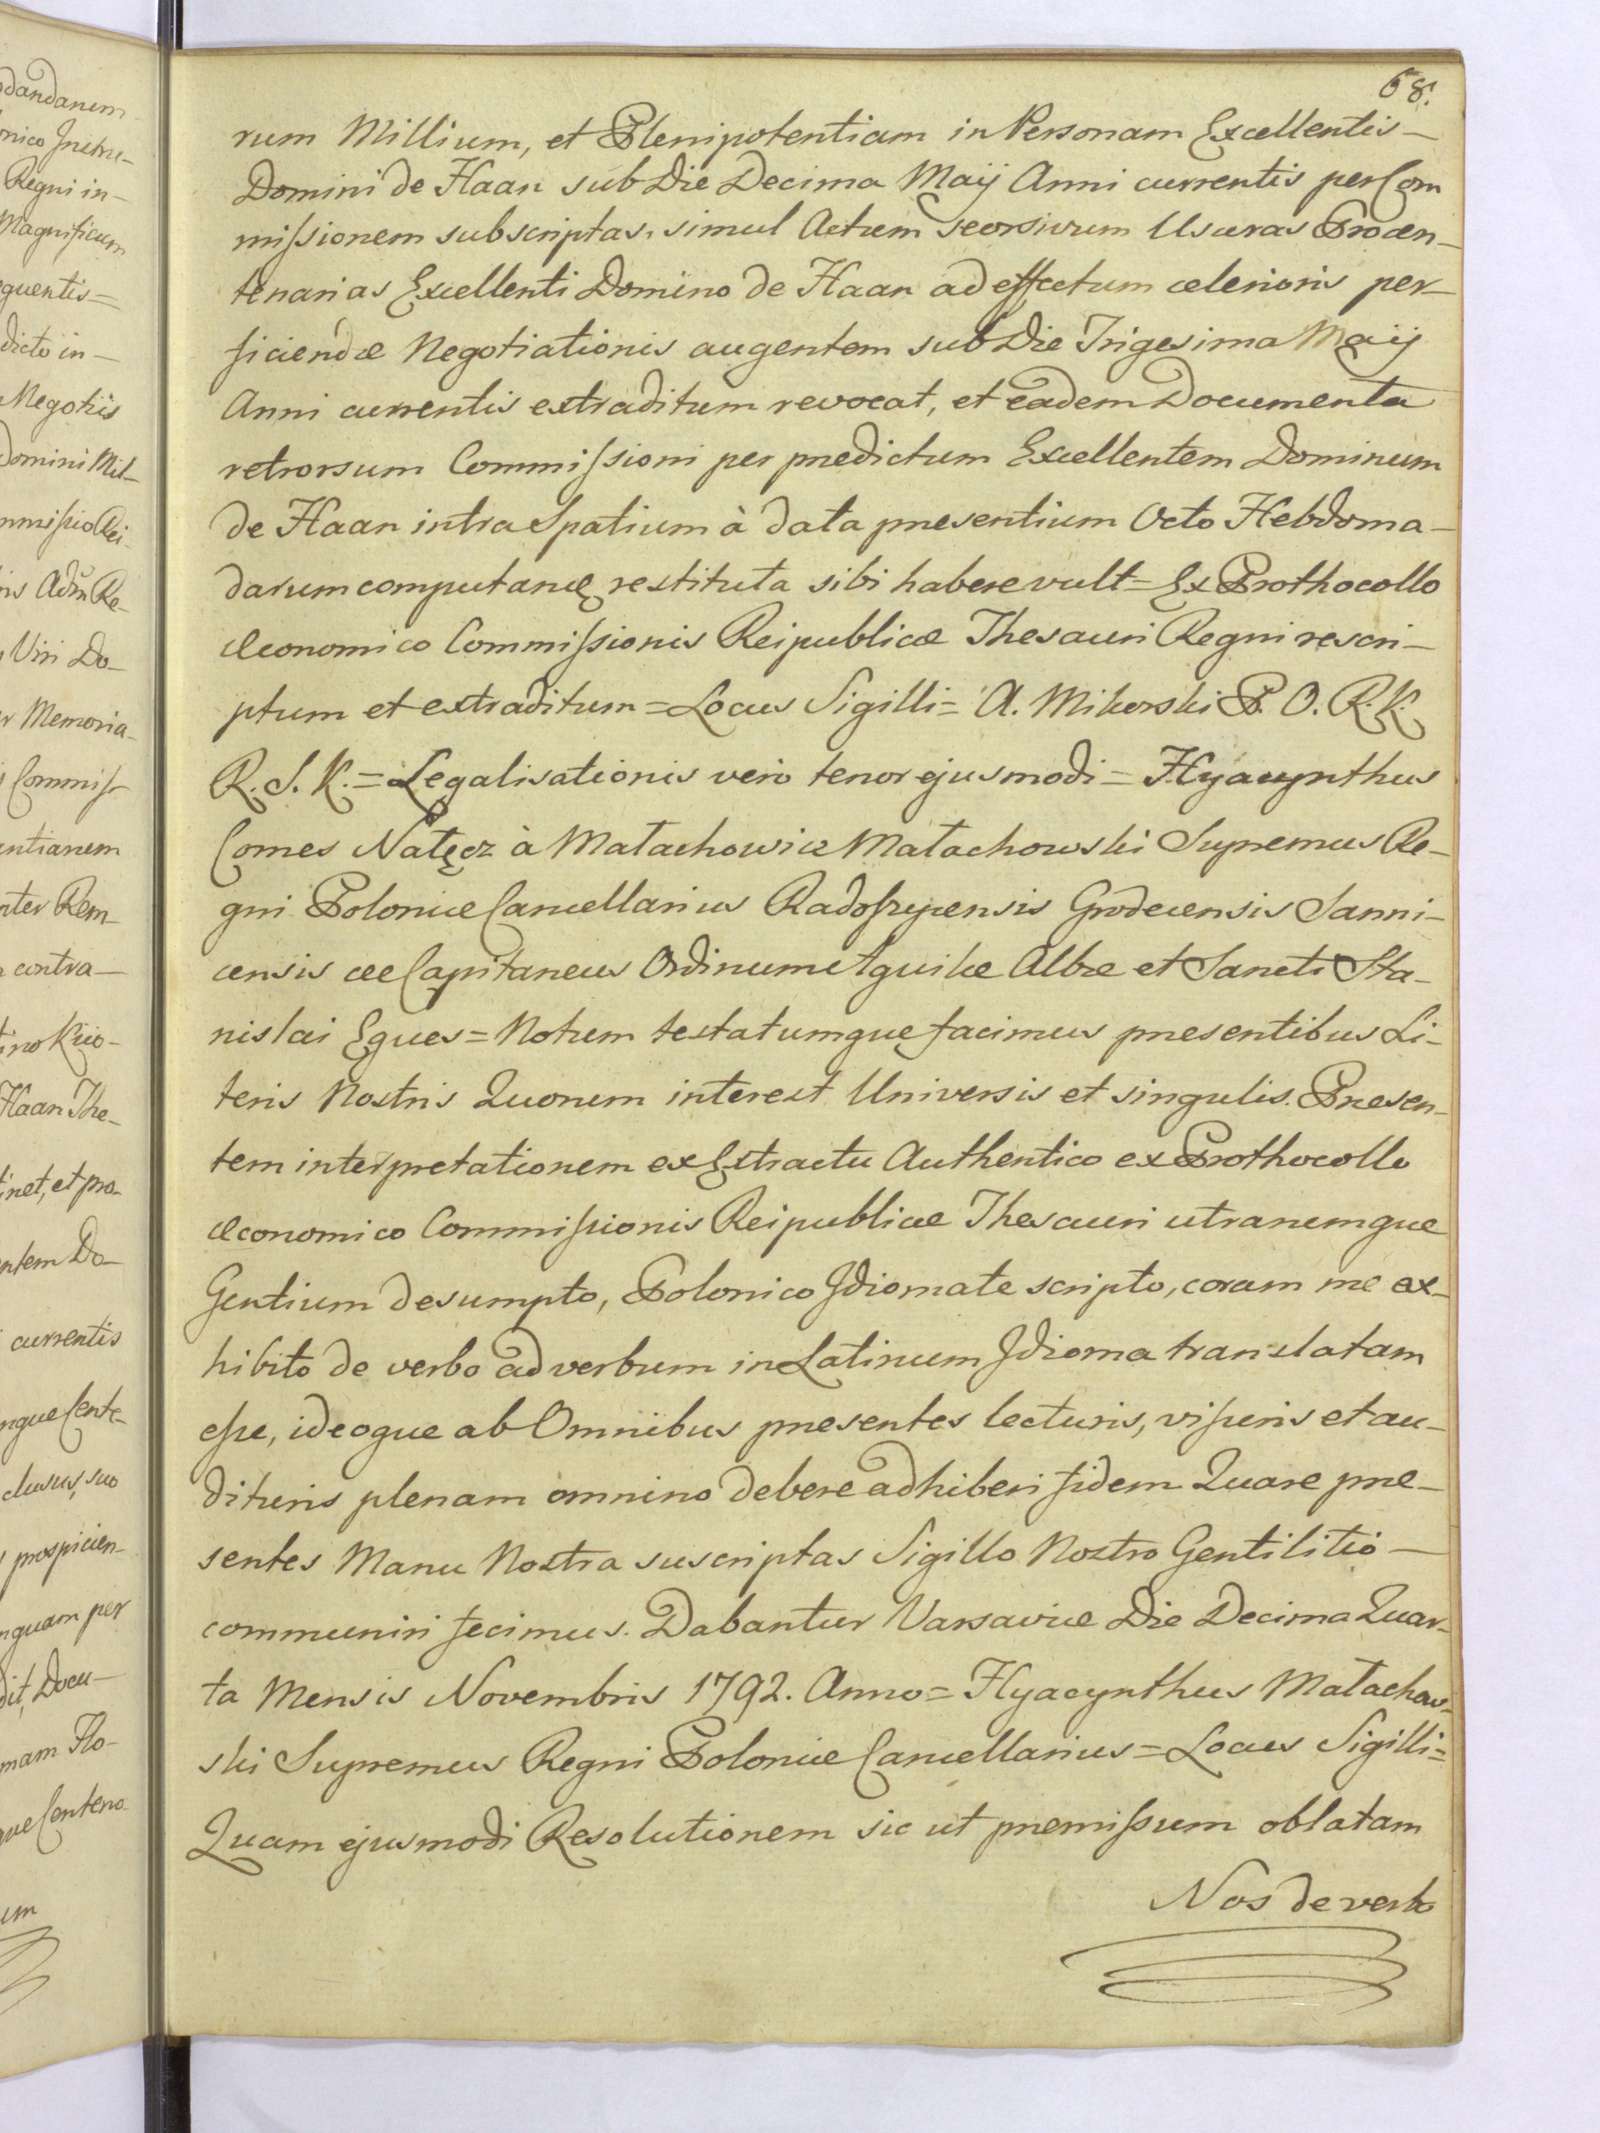 68.
rum Millium, et Plenipotentiam in Personam Excellentis—
Domini de Haan sub Die Decima Maij Anni currentis per Com
missionem subscriptas, simul Actum seorsivum Usuras Procen—
tenarias Excellenti Domino de Haan ad effectum celerioris per—
ficiendæ Negotiationis augentem sub Die Trigesima Maij
Anni currentis extraditum revocat, et eadem Documenta
retrorsum Commissioni per predictum Excellentem Dominum
de Haan intra Spatium à data presentium Octo Hebdoma—
darum computanḍę restituta sibi habere vult = Ex Prothocollo
Œconomico Commissionis Reipublicæ Thesauri Regni rescri—
ptum et extraditum = Locus Sigilli = A. Mikorski P. O. R. K.
R. S. K. = Legalisationis vero tenor ejusmodi = Hyacynthus
Comes Nałęcz à Małachowice Małachowski Supremus Re—
gni Poloniæ Cancellarius Radoszycensis Grodecensis Sanni—
censis &c Capitaneus Ordinum Aquilæ Albæ et Sancti Sta—
nislai Eques = Notum testatumque facimus presentibus Li—
teris Nostris Quorum interest Universis et singulis. Presen—
tem interpretationem ex Extractu Authentico ex Prothocollo
Œconomico Commissionis Reipublicæ Thesauri utrarumque
Gentium desumpto, Polonico Idiomate scripto, coram me ex—
hibito de verbo ad verbum in Latinum Idioma translatam
esse, ideoque ab Omnibus presentes lecturis, visuris et au—
dituris plenam omnino debere adhiberi fidem Quare pre—
sentes Manu Nostra suscriptas Sigillo Nostro Gentilitio—
communiri fecimus. Dabantur Varsaviæ Die Decima Quar—
ta Mensis Novembris 1792. Anno = Hyacynthus Małachow—
ski Supremus Regni Poloniæ Cancellarius = Locus Sigilli =
Quam ejusmodi Resolutionem sic ut premissum oblatam
Nos de verbo